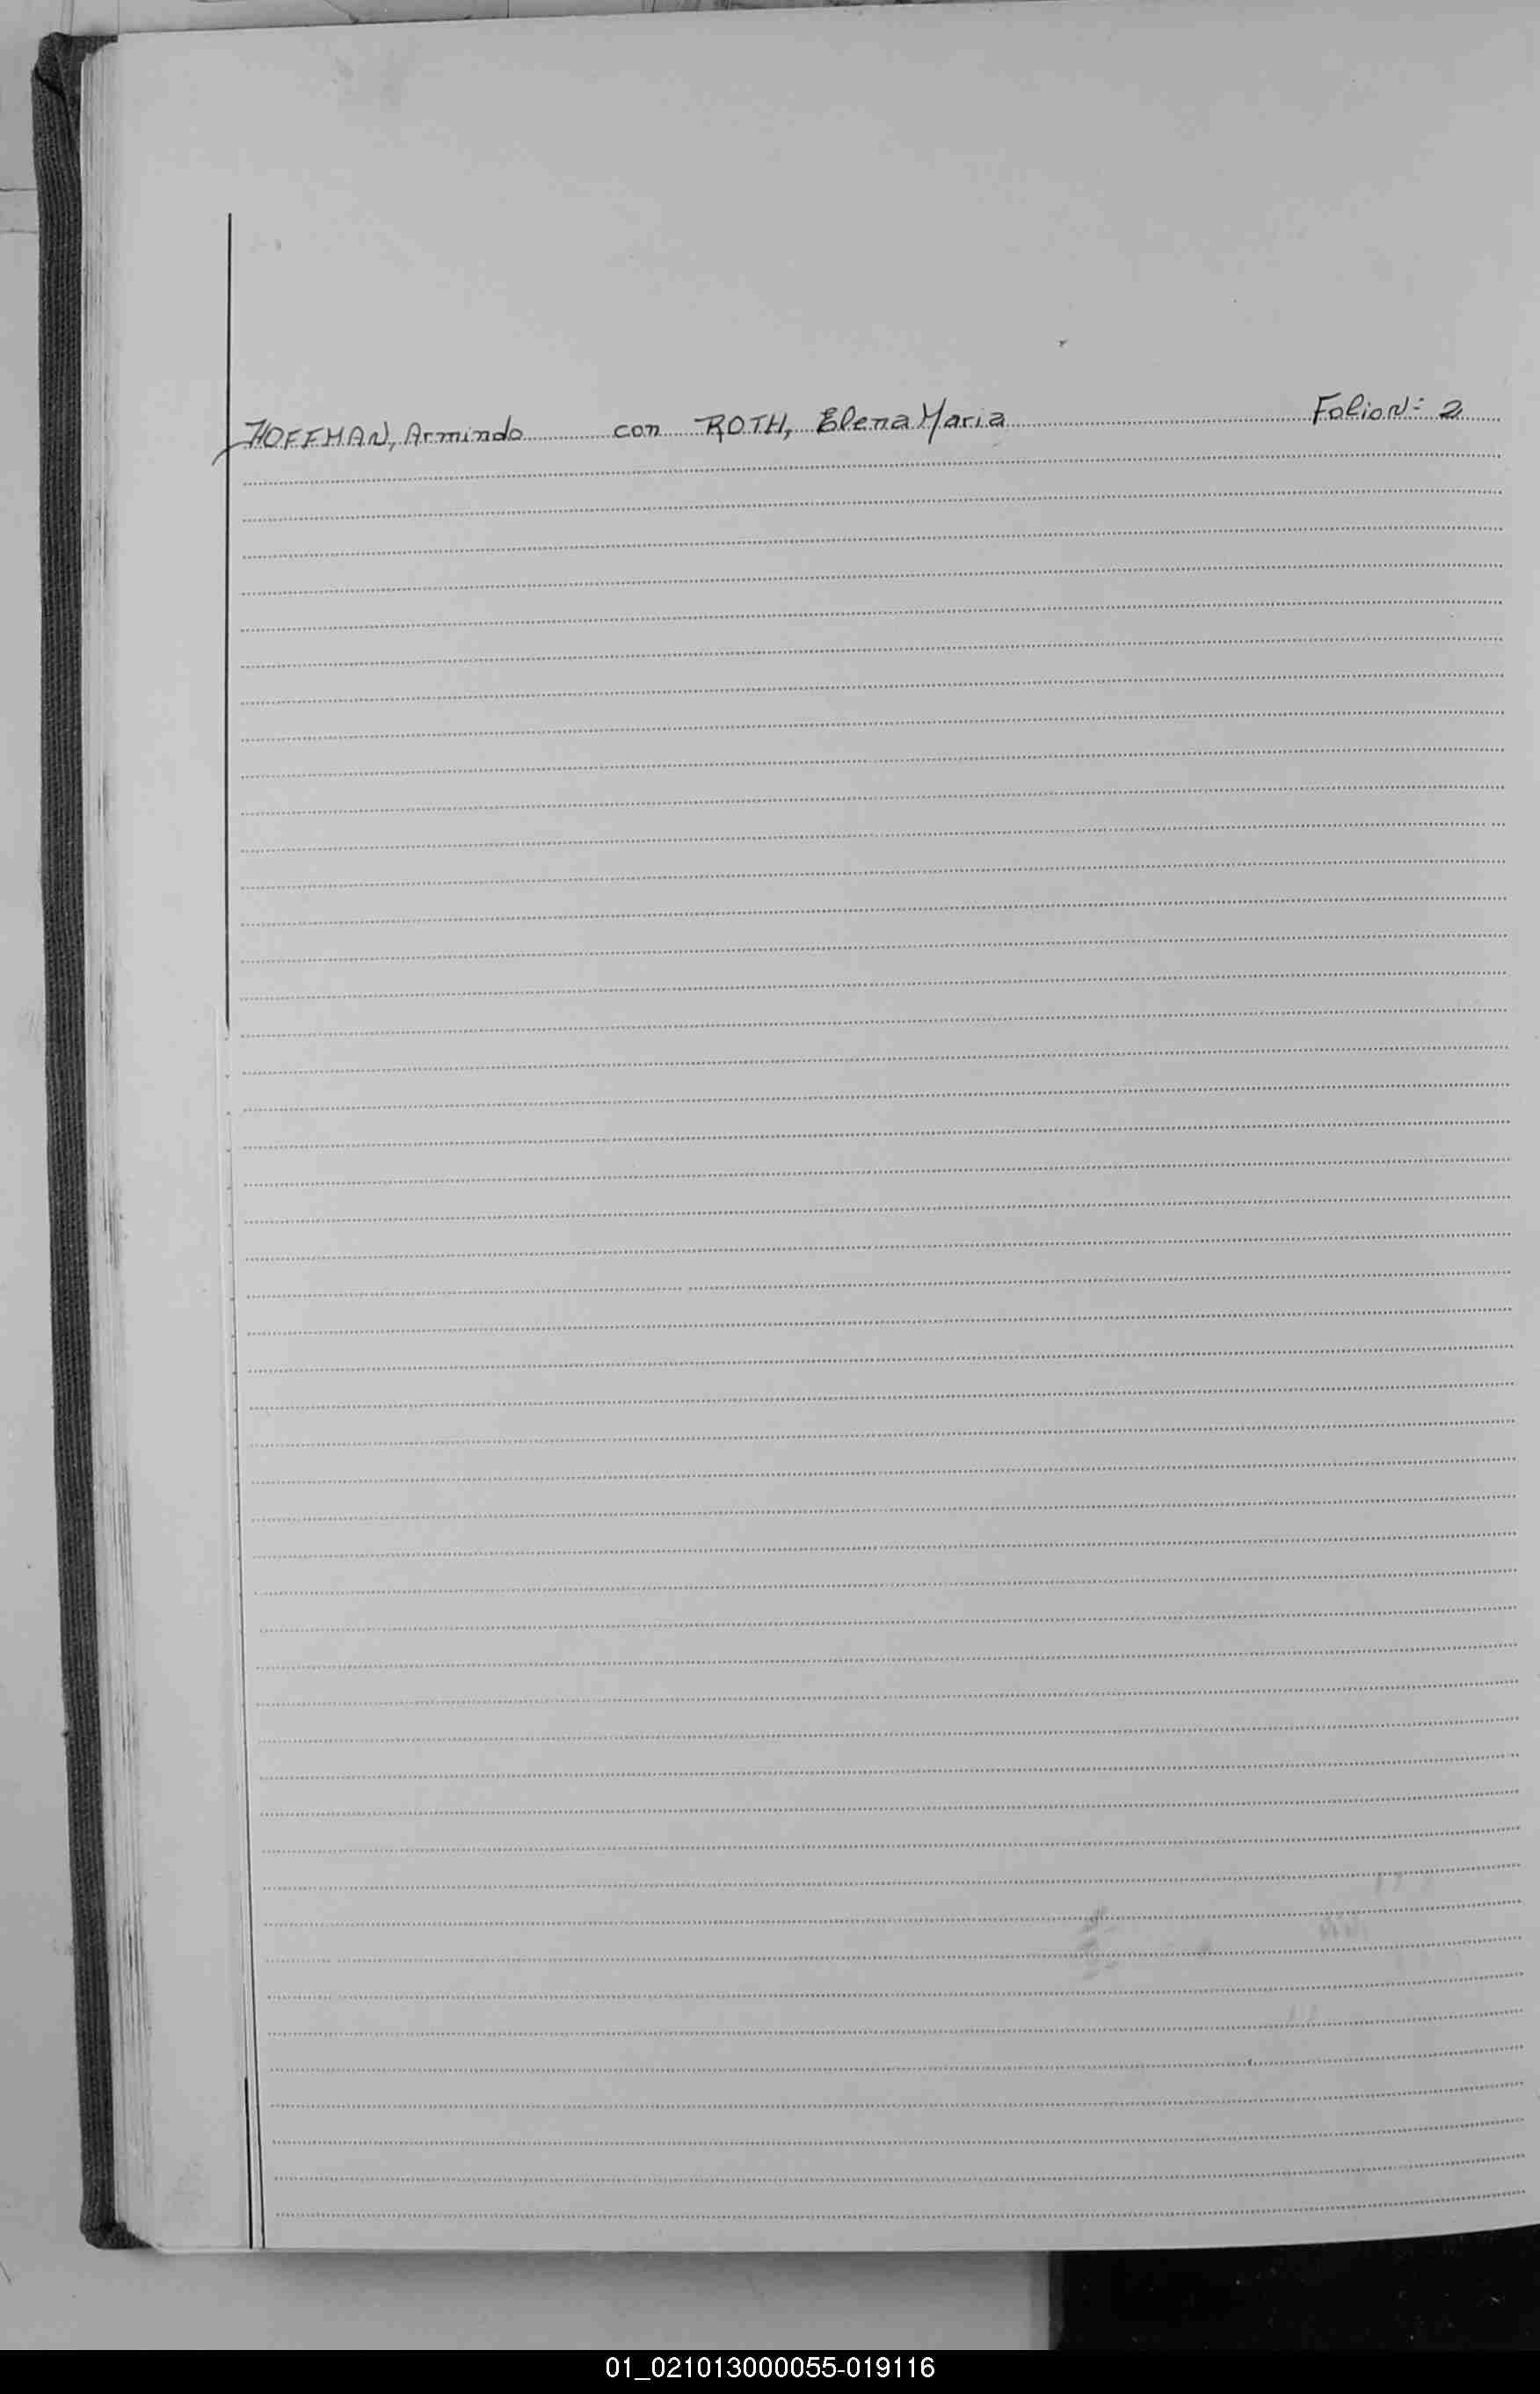 HOFFMAN, Armindo con ROTH, Elena Maria Folio N= 2
01_021013000055-019116